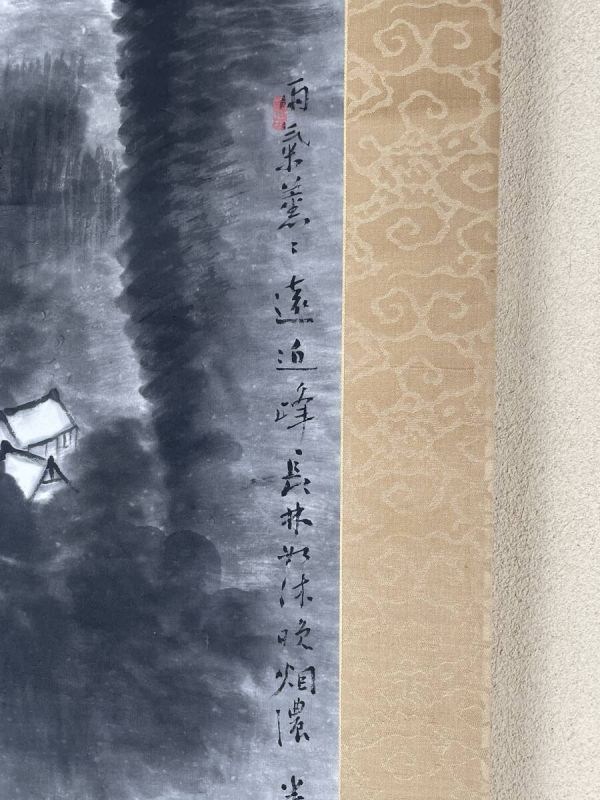 雨氣薰〻遠近峰長林如沐晚烟濃